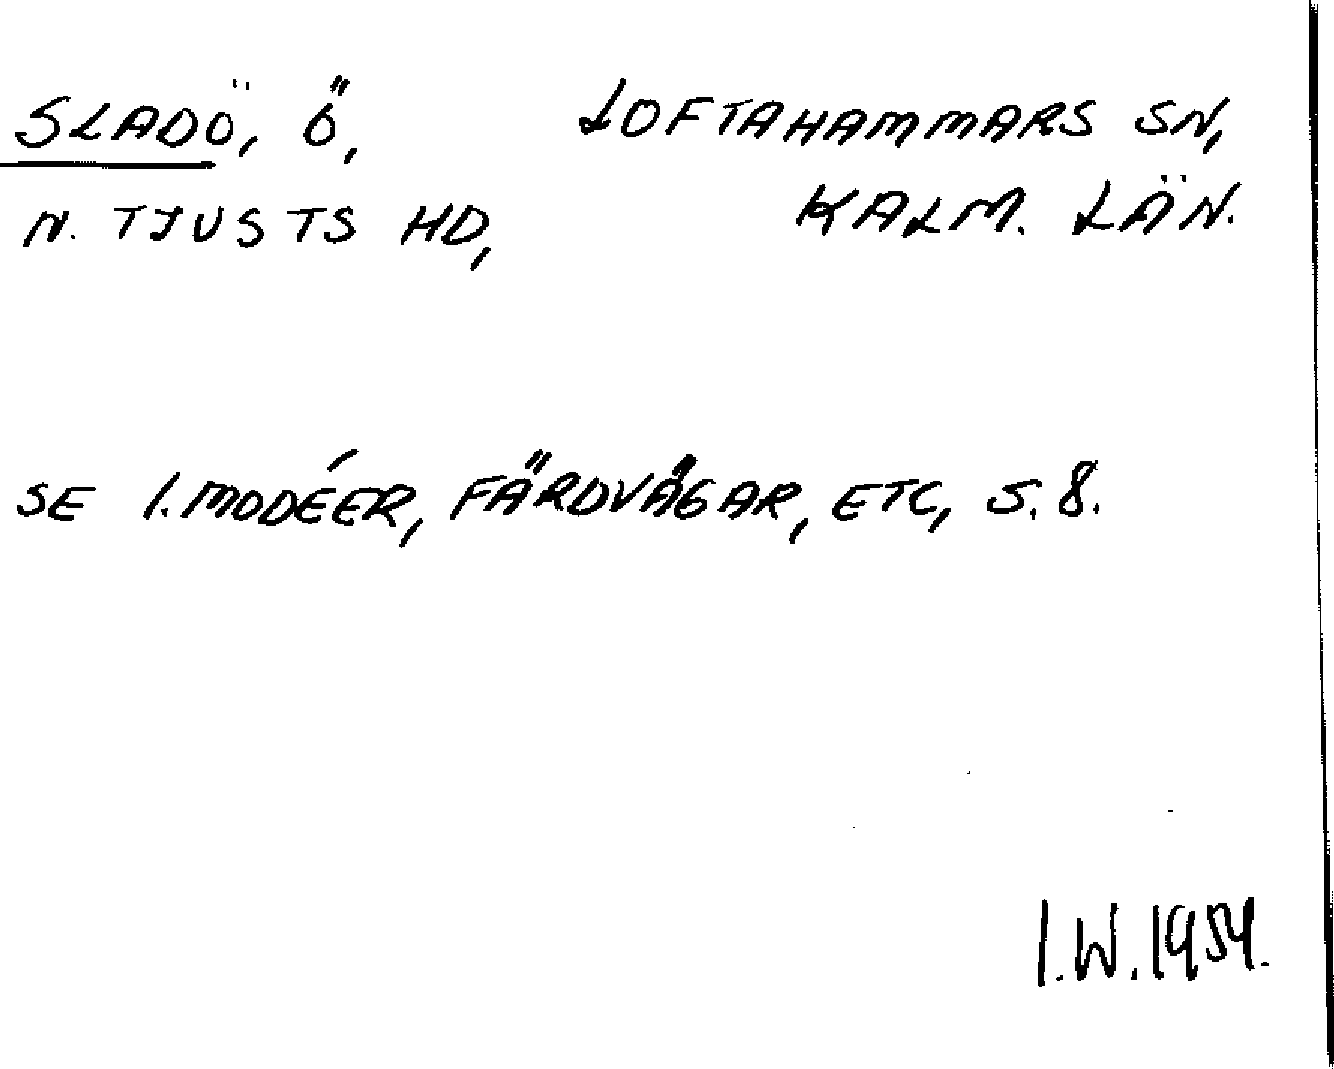 SLADÖ, Ö, LOFTAHAMMARS SN,
N. TJUSTS HD, KALM. LÄN.
SE I. MODÉER, FÄRDVÄGAR, ETC, S. 8.
I.W. 1954.